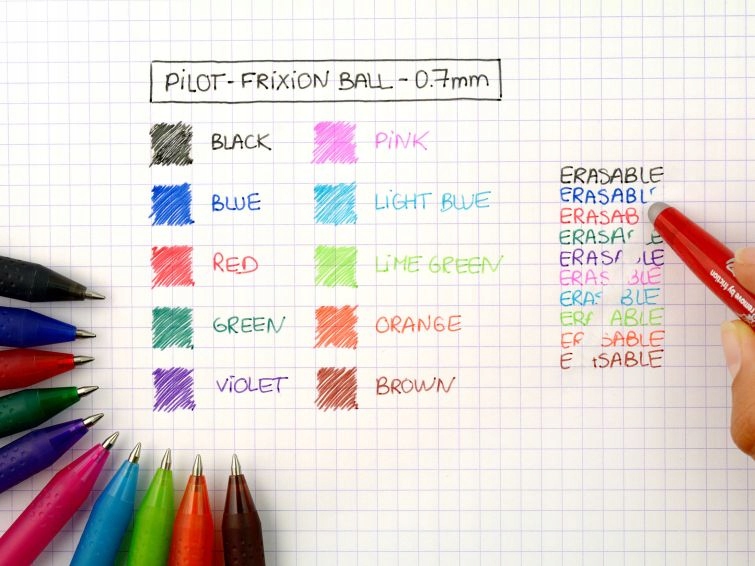 PiLOT-FRiXiON BALL-0.7mm
BLACK
BLUE
RED
GREEN
ViOLET
PiNK
LiGHT BLUE
LiME GREEN
ORANGE
BROWN
ERASABLE
ERASABL
ERASAB
ERASA LE
ERAS BLE
ERAS BLE
ERA BLE
ER ABLE
E SABLE
E SABLE
remove by friction